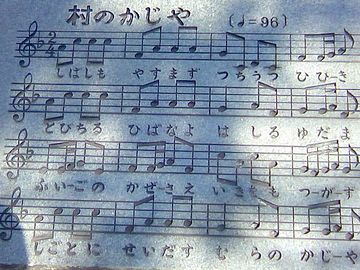 村のかじや (♩=96)
2/4
しばしも やすまず つちうつ ひびーき
とびちる ひばなよ はしる ゆだま
ふいーごの かぜさえ いきをも つーがず
しごとに せいだす むらの かじーや